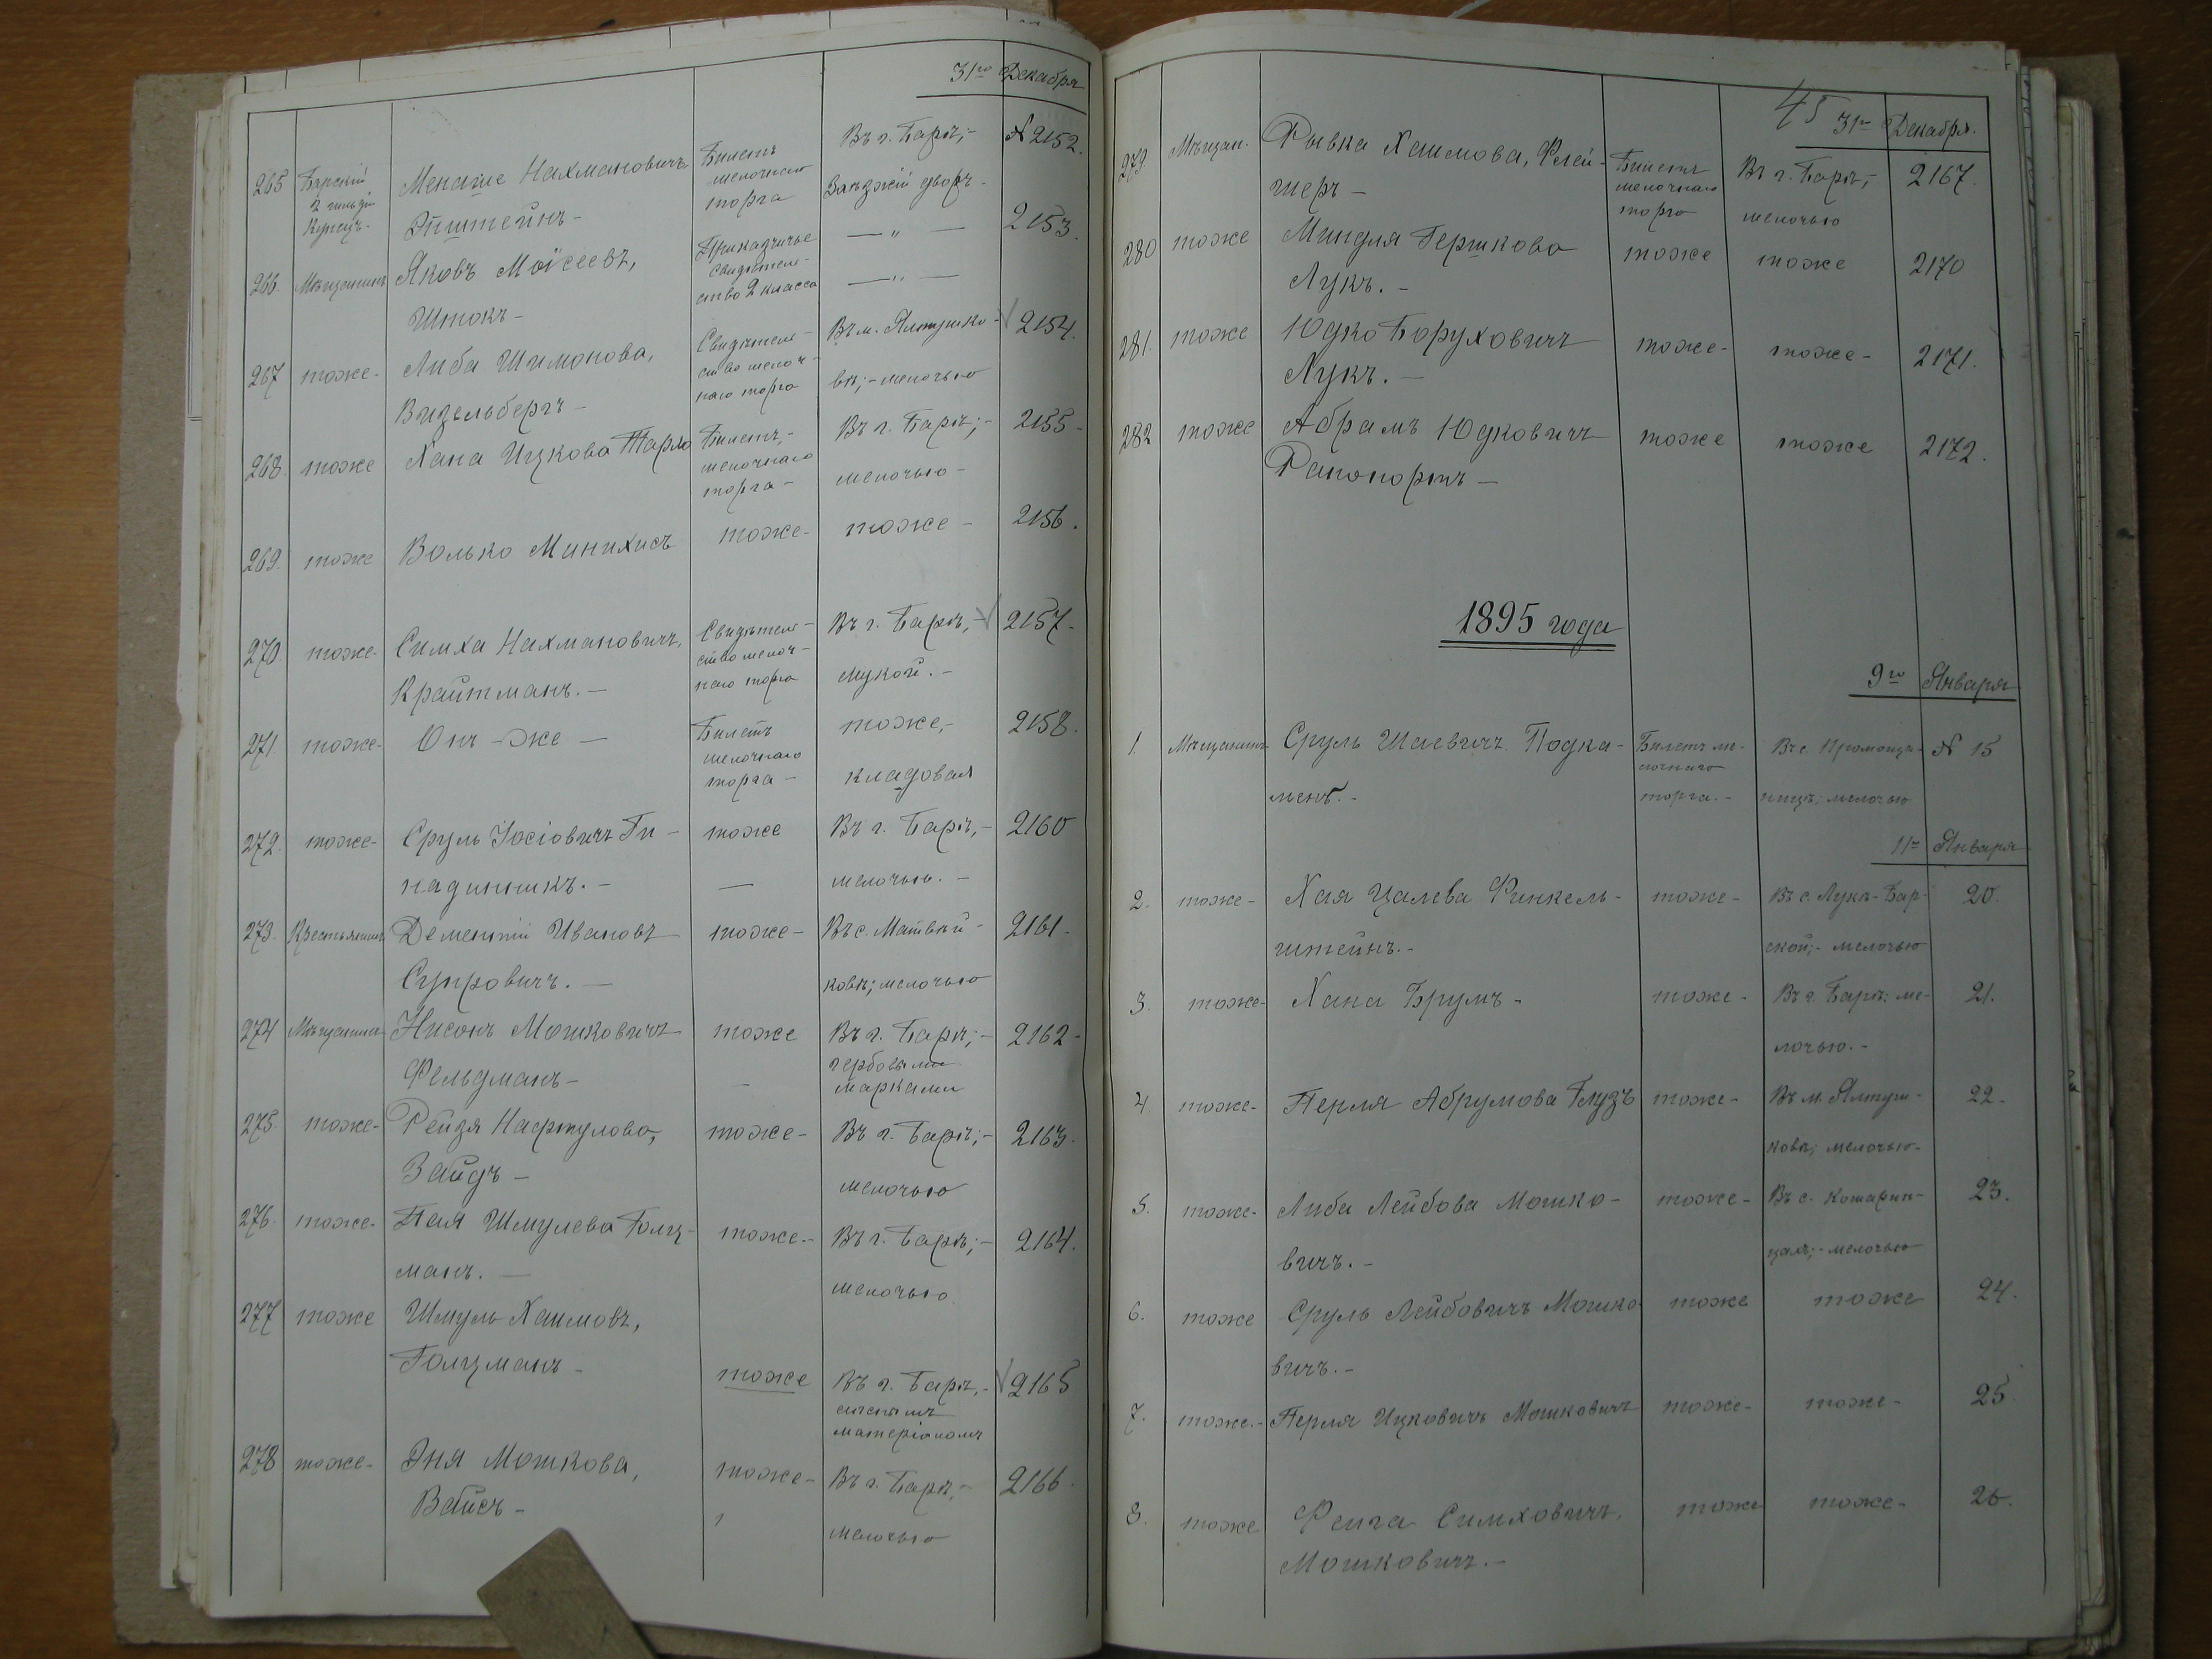 31го Декабря
265 Барскій 2 гильдіи Купецъ. Менаше Нахмановичъ Эпштейнъ - Билетъ мелочнаго торга Въ г. Барѣ;- Заѣзжій дворъ - № 2152.
266. Мѣщанинъ Яковъ Моисеевъ, Штокъ - Прикащичье свидѣтельство 2 класса — „ — — „ — 2153.
267 тоже - Либа Шимонова, Визельбергъ - Свидѣтельство мелочнаго торга Въ м. Ялтушковѣ;- мелочью 2154.
268. тоже Хана Ицкова Тарло Билетъ мелочнаго торга - Въ г. Барѣ;- мелочью - 2155 -
269. тоже Волько Минихисъ тоже - тоже - 2156.
270. тоже - Симха Нахмановичъ, Крайтманъ. — Свидѣтельство мелочнаго торга Въ г. Барѣ,- мукой. - 2157.
271. тоже - Онъ - же — Билетъ мелочнаго торга - тоже,- кладовая 2158.
272. тоже - Сруль Іосіовичъ Гинадинникъ. - тоже — Въ г. Барѣ,- мелочью. - 2160
273. Крестьянинъ Дементій Ивановъ Супровичъ. — тоже - Въ с. Матвѣйковѣ; мелочью 2161.
274 Мѣщанинъ Нисонъ Мошковичъ Фельдманъ - тоже - Въ г. Барѣ;- гербовыми марками 2162 -
275. тоже - Рейзя Нафтулова, Зайдъ - тоже - Въ г. Барѣ;- мелочью 2163.
276. тоже - Пая Шмулева Голцманъ. — тоже. - Въ г. Барѣ;- мелочью 2164.
277 тоже Шмуль Хаимовъ, Голцманъ - тоже Въ г. Барѣ,- лѣснымъ матеріаломъ 2165
278 тоже - Эня Мошкова, Вайсъ - тоже - Въ г. Барѣ,- мелочью 2166.
45 31го Декабря.
279. Мѣщан. Рывка Хаимова, Флейшеръ - Билетъ мелочнаго торга Въ г. Барѣ,- мелочью 2167.
280 тоже Миндля Гершкова Лукъ. - тоже тоже 2170
281. тоже Юдко Боруховичъ Лукъ. — тоже - тоже - 2171.
282 тоже Абрамъ Юдковичъ Рапопортъ — тоже тоже 2172.
1895 года
9го Января
1. Мѣщанинъ Сруль Шаевичъ Подкаменъ. - Билетъ мелочнаго торга. - Въ с. мелочью № 15
11го Января
2. тоже - Хая Цалева Финкельштейнъ. - тоже - Въ с. Лукѣ-Барской;- мелочью 20.
3. тоже - Хана Брумъ - тоже - Въ г. Барѣ; мелочью. - 21.
4. тоже - Перля Абрумова Глузъ тоже - Въ м. Ялтушковѣ; мелочью - 22.
5. тоже - Либа Лейбова Мошковичъ. - тоже - Въ с. мелочью 23.
6. тоже Сруль Лейбовичъ Мошковичъ. - тоже тоже 24.
7. тоже. - Перля Ицковичъ Мошковичъ тоже - тоже - 25.
8. тоже Фейга Симховичъ, Мошковичъ. - тоже тоже - 26.